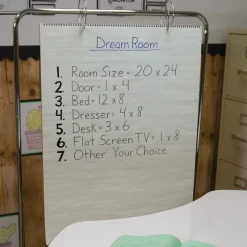 Dream Room
1. Room Size = 20 x 24
2. Door = 1 x 4
3. Bed = 12 x 8
4. Dresser = 4 x 8
5. Desk = 3 x 6
6. Flat Screen TV = 1 x 8
7. Other Your Choice